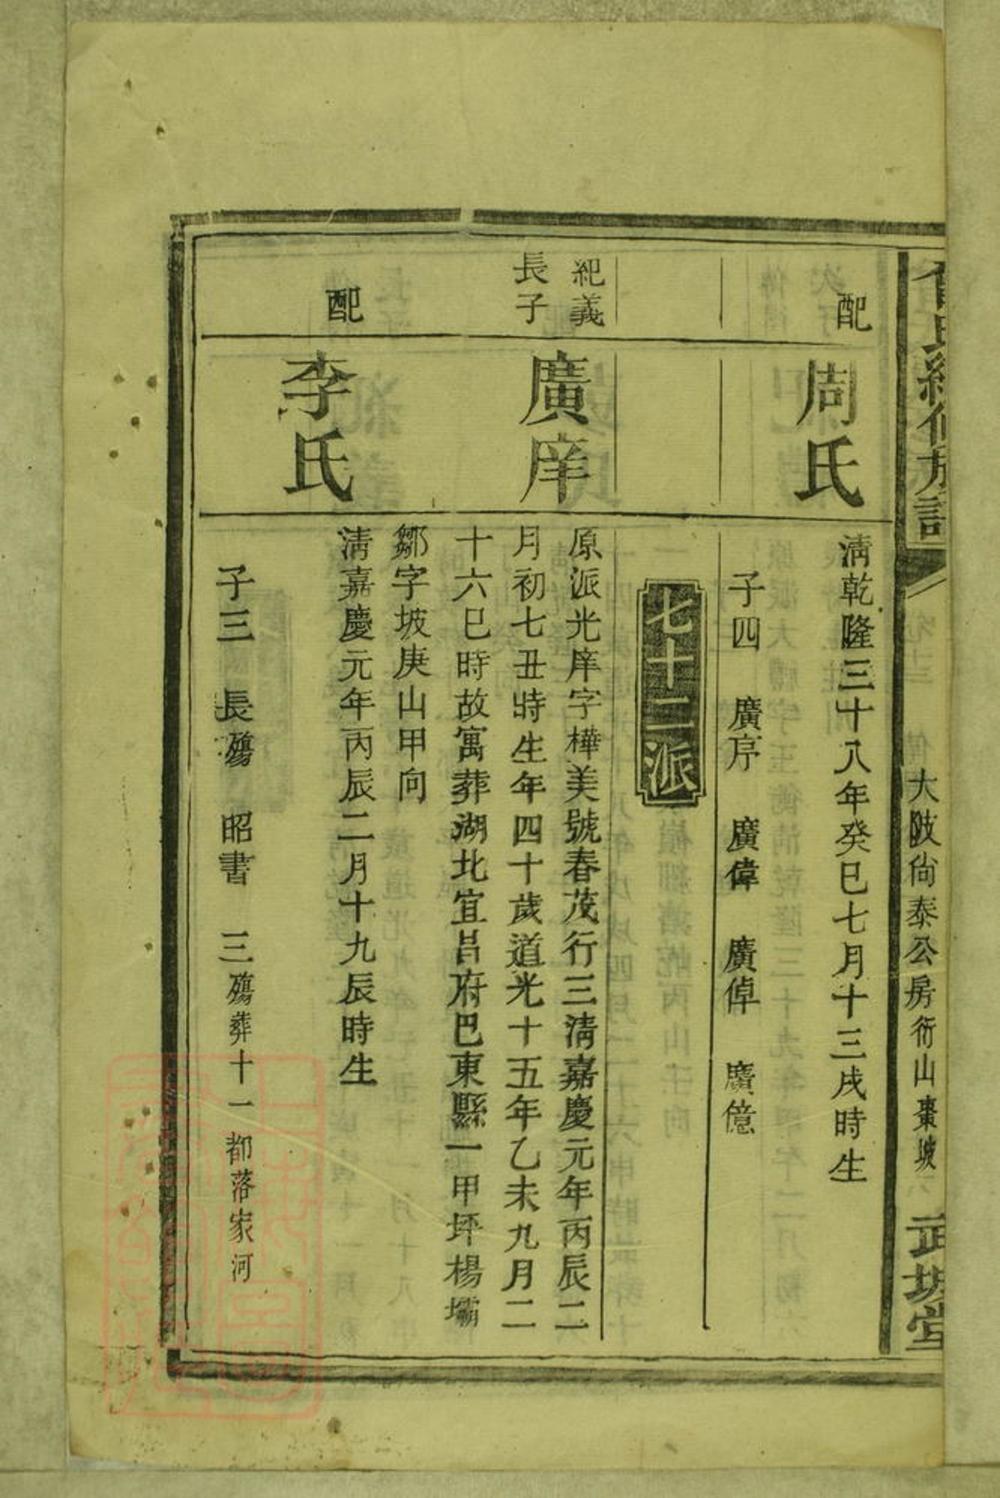 氏續修族譜
大陂尙泰公房衍山棗坡
武城堂
配
周氏
淸乾隆三十八年癸巳七月十三戌時生
子四 廣序 廣偉 廣倬 廣億
七十二派
紀義
長子
廣庠
原派光庠字樺美號春茂行三淸嘉慶元年丙辰二
月初七丑時生年四十歲道光十五年乙未九月二
十六巳時故寓葬湖北宜昌府巴東縣一甲坪楊壩
鄒字坡庚山甲向
配
李氏
淸嘉慶元年丙辰二月十九辰時生
子三 長殤 昭書 三殤葬十一都落家河